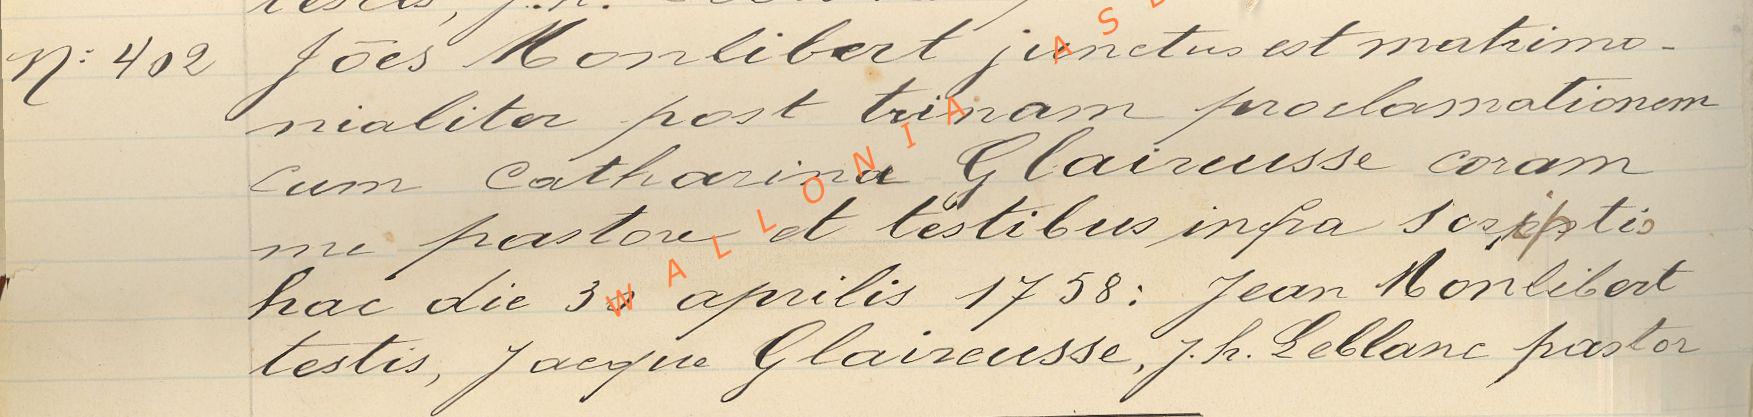 N: 402 Jōes Monlibert junctus est matrimo-
nialiter post trinam proclamationem
cum Catharina Glaireusse coram
me pastore et testibus infra scriptis
hac die aprilis 1758: Jean Monlibert
testis, Jacque Glaireusse, j. h. Leblanc pastor
WALLONIA